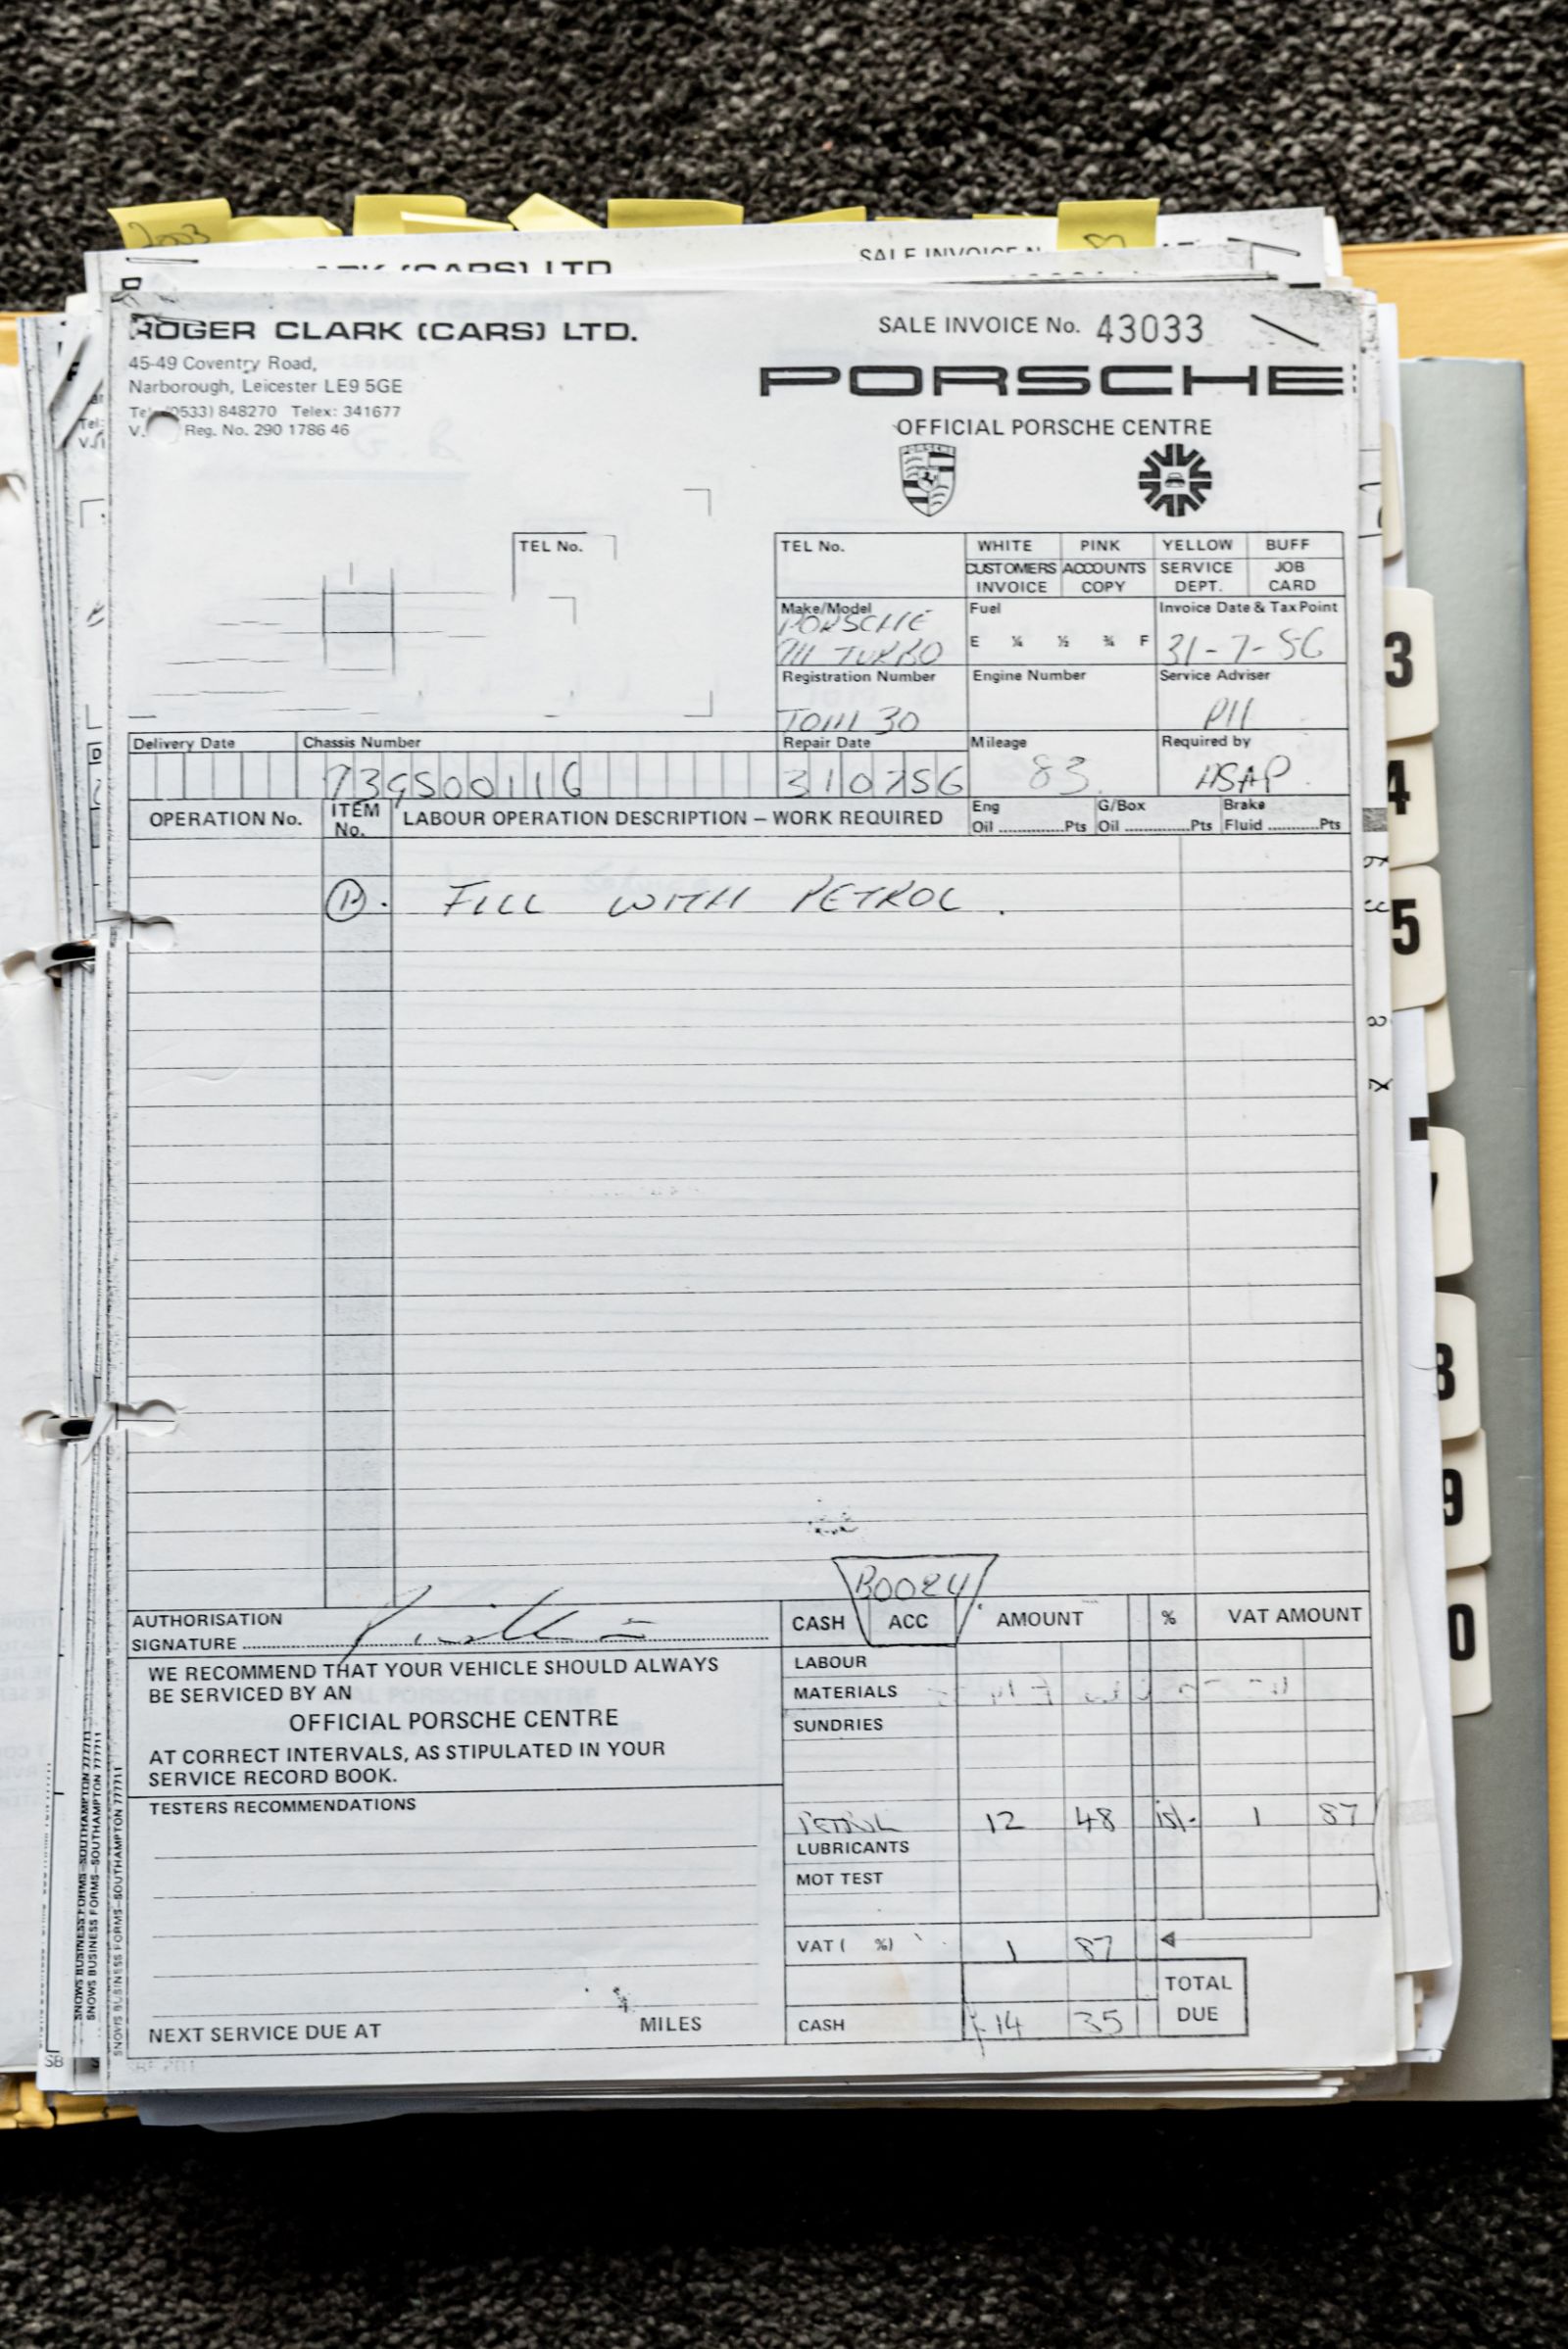 2003
SALE INVOICE N
CLARK (CARS) LTD
ROGER CLARK (CARS) LTD.
SALE INVOICE No. 43033
45-49 Coventry Road,
Narborough, Leicester LE9 5GE
Tel: (0533) 848270 Telex: 341677
V. Reg. No. 290 1786 46
PORSCHE
OFFICIAL PORSCHE CENTRE
PORSCHE
TEL No.
TEL No.
WHITE PINK YELLOW BUFF
CUSTOMERS ACCOUNTS SERVICE JOB
INVOICE COPY DEPT. CARD
Make/Model Fuel Invoice Date & Tax Point
PORSCHE
911 TURBO E ¼ ½ ¾ F 31-7-86
Registration Number Engine Number Service Adviser
PH
Delivery Date Chassis Number Repair Date Mileage Required by
310786 83 ASAP.
OPERATION No. ITEM No. LABOUR OPERATION DESCRIPTION – WORK REQUIRED
Eng Oil ............Pts G/Box Oil ............Pts Brake Fluid ............Pts
1. FILL WITH PETROL.
AUTHORISATION
SIGNATURE
CASH ACC AMOUNT % VAT AMOUNT
WE RECOMMEND THAT YOUR VEHICLE SHOULD ALWAYS
BE SERVICED BY AN
OFFICIAL PORSCHE CENTRE
AT CORRECT INTERVALS, AS STIPULATED IN YOUR
SERVICE RECORD BOOK.
TESTERS RECOMMENDATIONS
NEXT SERVICE DUE AT MILES
LABOUR
MATERIALS
SUNDRIES
PETROL 12 48 15/- 1 87
LUBRICANTS
MOT TEST
VAT ( %) 1 87
CASH £14 35
TOTAL
DUE
SNOWS BUSINESS FORMS–SOUTHAMPTON 777711
SNOWS BUSINESS FORMS–SOUTHAMPTON 777711
SNOWS BUSINESS FORMS–SOUTHAMPTON 777711
SB
3
4
5
8
9
0